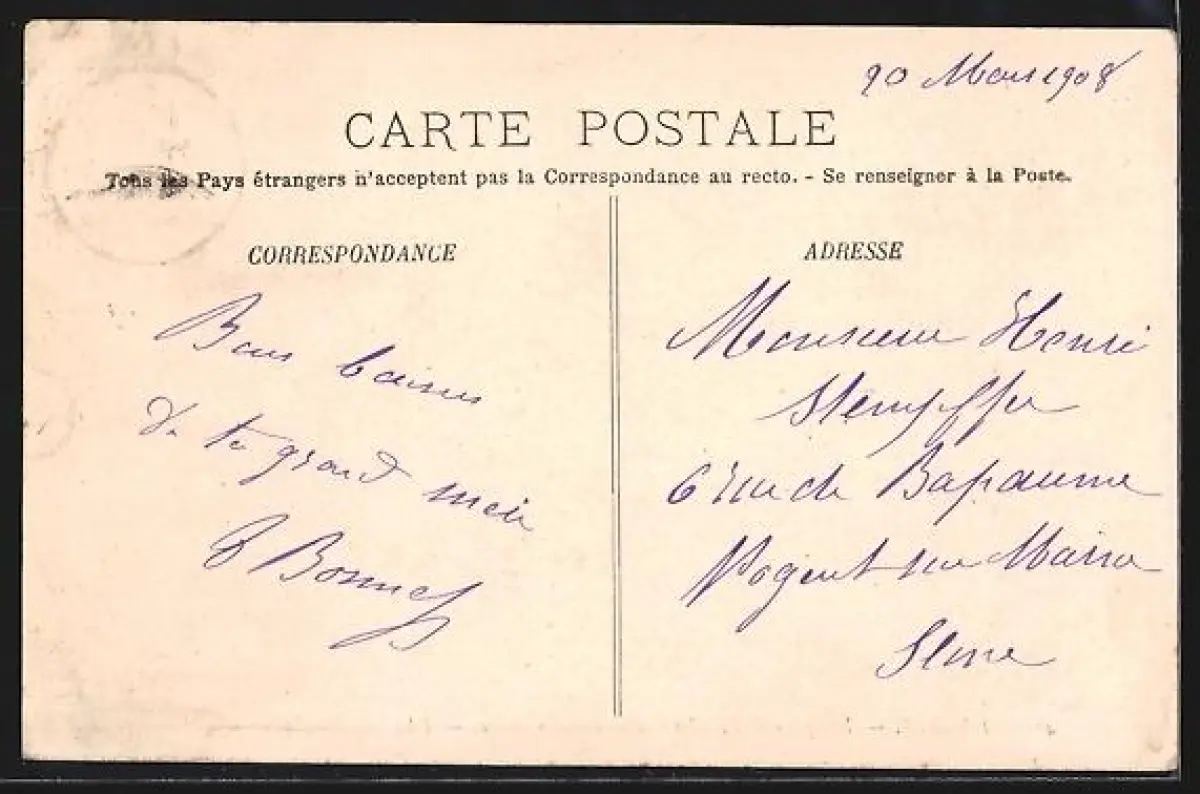 20 Mars 1908
CARTE POSTALE
Tous les Pays étrangers n'acceptent pas la Correspondance au recto. - Se renseigner à la Poste.
CORRESPONDANCE
Bons baisers
de ta grand mère
Bonnef
ADRESSE
Monsieur Henri
6 rue de Bapaume
Nogent sur Marne
Seine